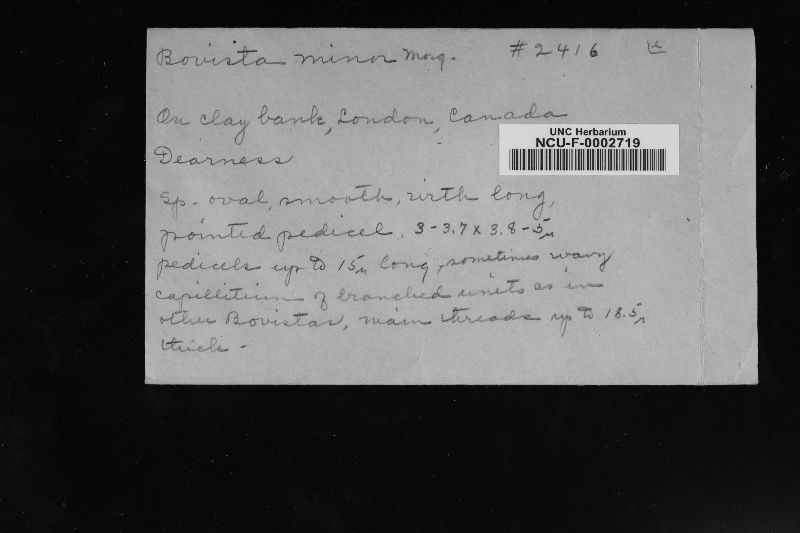 Bovista minor Morg. #2416
On clay bank, London, Canada
UNC Herbarium
NCU-F-0002719
Dearness
Sp. oval, smooth, with long,
pointed pedicel. 3-3.7 x 3.8-5µ
pedicels up to 15µ long, sometimes wavy
capillitium of branched units as in
other Bovistas, main threads up to 18.5µ
thick -